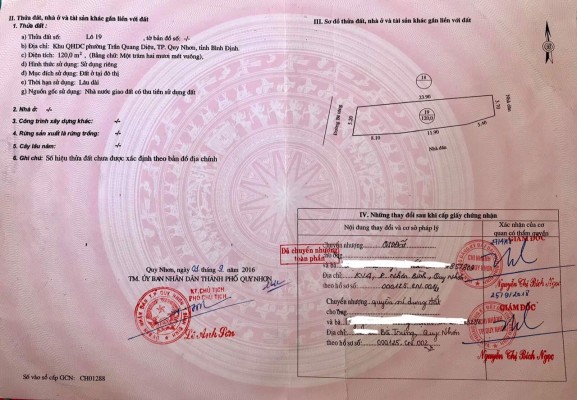 II. Thửa đất, nhà ở và tài sản khác gắn liền với đất
1. Thửa đất:
a) Thửa đất số: Lô 19 , tờ bản đồ số: -/-
b) Địa chỉ: Khu QHDC phường Trần Quang Diệu, TP. Quy Nhơn, tỉnh Bình Định.
c) Diện tích: 120,0 m², (Bằng chữ: Một trăm hai mươi mét vuông).
d) Hình thức sử dụng: Sử dụng riêng
đ) Mục đích sử dụng: Đất ở tại đô thị
e) Thời hạn sử dụng: Lâu dài
g) Nguồn gốc sử dụng: Nhà nước giao đất có thu tiền sử dụng đất
2. Nhà ở: -/-
3. Công trình xây dựng khác: -/-
4. Rừng sản xuất là rừng trồng: -/-
5. Cây lâu năm: -/-
6. Ghi chú: Số hiệu thửa đất chưa được xác định theo bản đồ địa chính
Quy Nhơn, ngày 02 tháng 2 2016
TM. ỦY BAN NHÂN DÂN THÀNH PHỐ QUY NHƠN
KT. CHỦ TỊCH
PHÓ CHỦ TỊCH
Số vào sổ cấp GCN: CH01288
III. Sơ đồ thửa đất, nhà ở và tài sản khác gắn liền với đất
18
23.90
19
120,0
5.20
5.70
8.10
11.90
3.40
Nhà dân
Nhà dân
Đường bê tông
Đã chuyển nhượng
toàn phần
IV. Những thay đổi sau khi cấp giấy chứng nhận
Nội dung thay đổi và cơ sở pháp lý
Xác nhận của cơ
quan có thẩm quyền
Chuyển nhượng
GIÁM ĐỐC
cho ông
và bà
Địa chỉ: Nhơn Bình, Quy Nhơn
theo hồ sơ số: 000125.CN.001
Nguyễn Thị Bích Ngọc
Chuyển nhượng quyền sử dụng đất
25/9/2018
cho ông
GIÁM ĐỐC
và bà
Địa chỉ: Bà Trưng, Quy Nhơn
theo hồ sơ số: 000125.CN.002
Nguyễn Thị Bích Ngọc